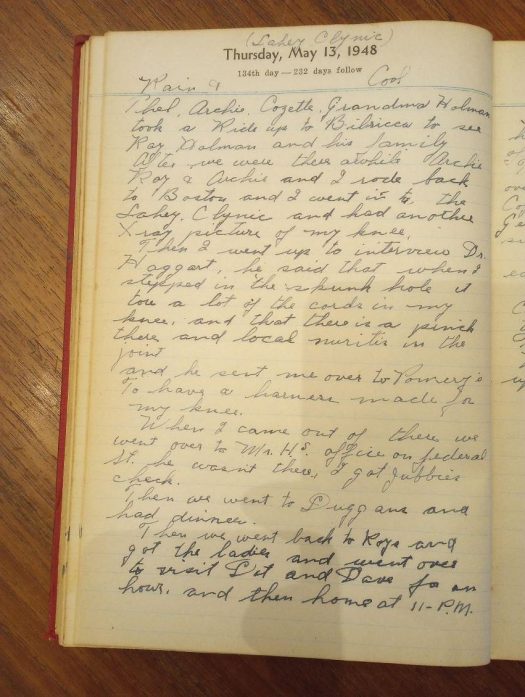 (Lahey Clynic)
Thursday, May 13, 1948
134th day — 232 days follow
Rain & Cool
Thel, Archie, Cozette, Grandma Holman
took a Ride up to Bilricca to see
Ray Holman and his family
After we were there awhile Archie
Roy & Archie and I rode back
to Boston and I went in to the
Lahey Clynic and had another
X ray picture of my knee.
Then I went up to interview Dr.
Haggart, he said that when I
stepped in the skunk hole it
tore a lot of the cords in my
knee, and that there is a pinch
there and local nuritis in the
joint
and he sent me over to Pomery's
To have a harness made for
my knee.
When I came out of there we
went over to Mr. H's. office on federal
St. he wasnt there, I got Jubbies
check.
Then we went to Duggans and
had dinner.
Then we went back to Roys and
got the ladies and went over
to visit Dit and Dave for an
hour, and then home at 11-P.M.